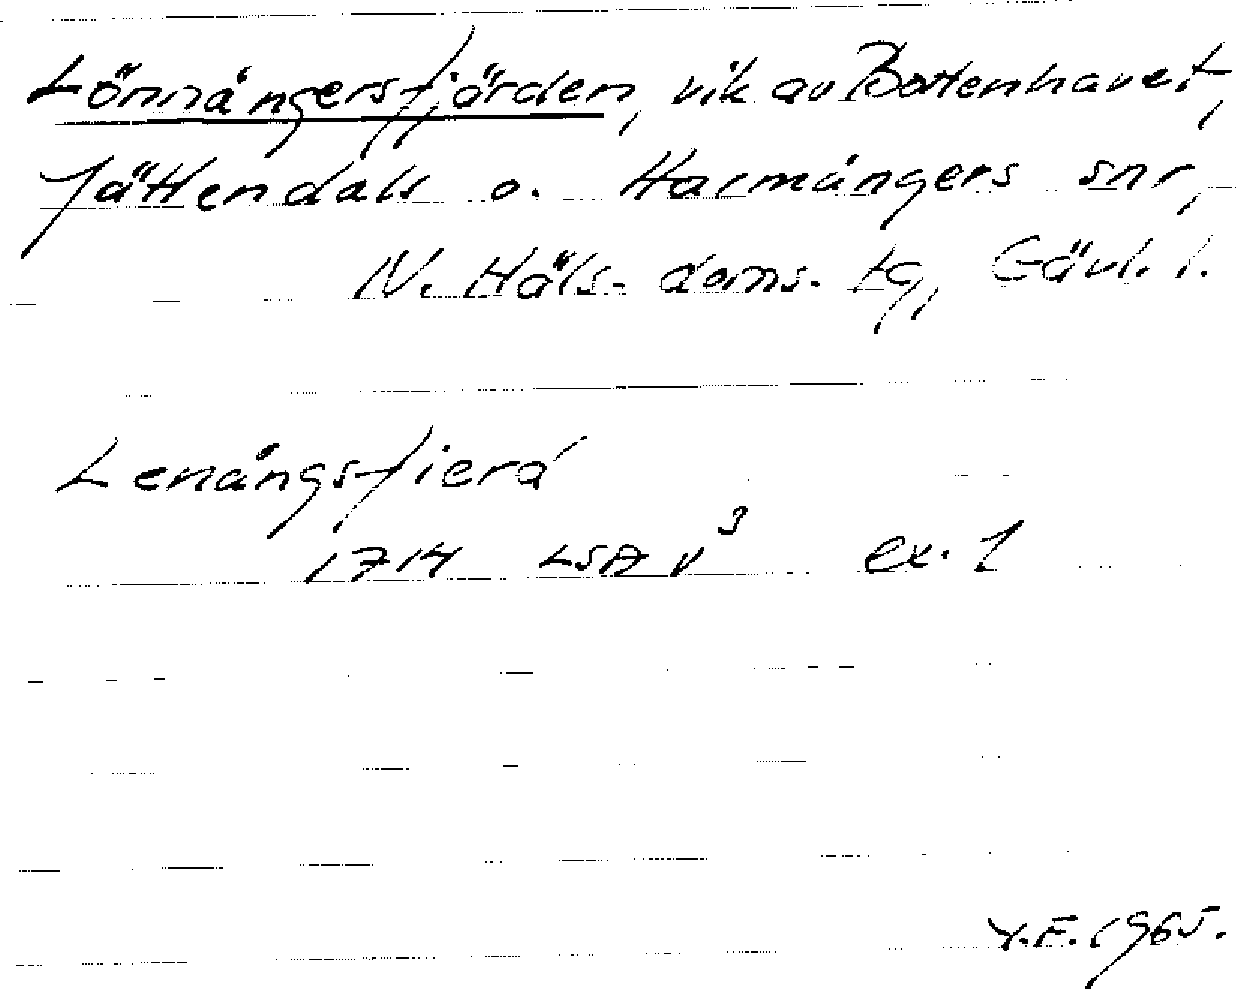 Lönnångersfjärden, vik av Bottenhavet,
Jättendals o. Harmångers snr,
N. Häls. doms. tg, Gävl. l.
Lenångsfierd
1714 LSA V³ ex. 1
Y.F. 1965.